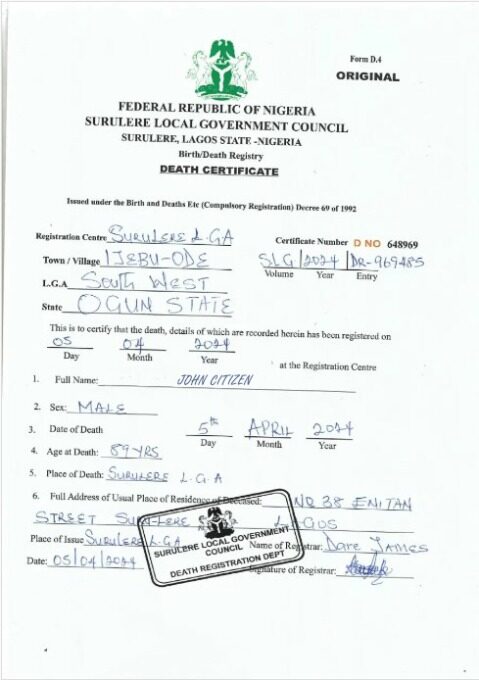 Form D.4
ORIGINAL
FEDERAL REPUBLIC OF NIGERIA
SURULERE LOCAL GOVERNMENT COUNCIL
SURULERE, LAGOS STATE -NIGERIA
Birth/Death Registry
DEATH CERTIFICATE
Issued under the Birth and Deaths Etc (Compulsory Registration) Decree 69 of 1992
Registration Centre SURULERE L.GA
Certificate Number D NO 648969
Town / Village IJEBU-ODE
SLG/2024/DR-969485
Volume Year Entry
L.G.A SOUTH WEST
State OGUN STATE
This is to certify that the death, details of which are recorded herein has been registered on
05 04 2024
Day Month Year
at the Registration Centre
1. Full Name: JOHN CITIZEN
2. Sex: MALE
3. Date of Death 5th APRIL 2024
Day Month Year
4. Age at Death: 89 YRS
5. Place of Death: SURULERE L.G.A
6. Full Address of Usual Place of Residence of Deceased: NO 38 ENITAN
STREET SURULERE LAGOS
Place of Issue SURULERE L.GA Name of Registrar: Dare James
Date: 05/04/2024 Signature of Registrar:
SURULERE LOCAL GOVERNMENT
COUNCIL
DEATH REGISTRATION DEPT